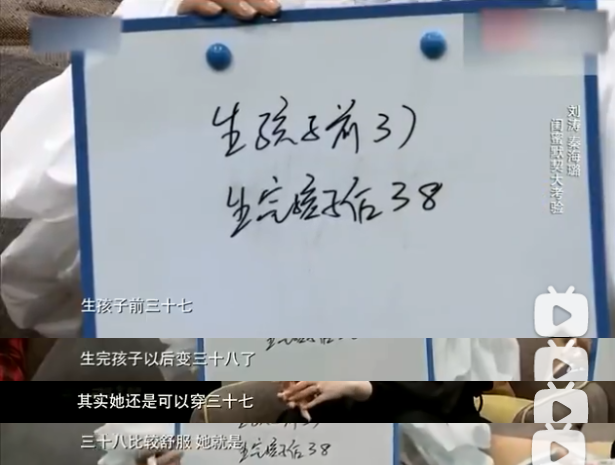 生孩子前37
生完孩子后38
刘涛 秦海璐
闺蜜默契大考验
生孩子前三十七
生完孩子以后变三十八了
其实她还是可以穿三十七
三十八比较舒服 她就是
生完孩子后38